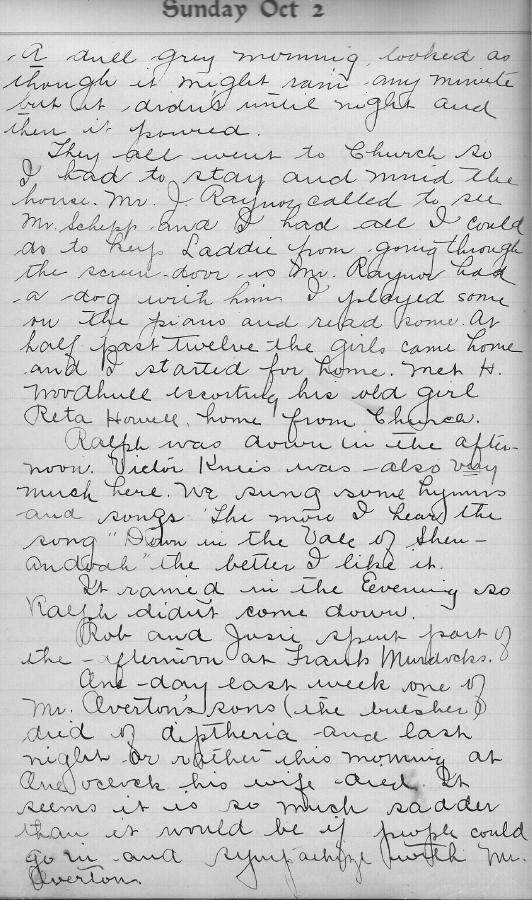 Sunday Oct 2
A dull grey morning, looked as
though it might rain any minute
but it didn't until night and
then it poured.
They all went to Church so
I had to stay and mind the
house. Mr. J Raynor called to see
Mr. Schepp and I had all I could
do to keep Laddie from going through
the screen-door as Mr. Raynor had
a dog with him. I played some
on the piano and read some. At
half past twelve the girls came home
and I started for home. Met H.
Woodhull escorting his old girl
Reta Howell, home from Church.
Ralph was down in the after-
noon. Victor Kneis was also very
much here. We sung some hymns
and songs. The more I hear the
song "Down in the Vale of Shen-
andoah" the better I like it.
It rained in the Evening so
Ralph didn't come down.
Rob and Josie spent part of
the afternoon at Frank Murdocks.
One day last week one of
Mr. Overton's sons (the butcher)
died of diptheria and last
night or rather this morning at
One oclock his wife died. It
seems it is so much sadder
than it would be if people could
go in and sympathize with Mr.
Overton.